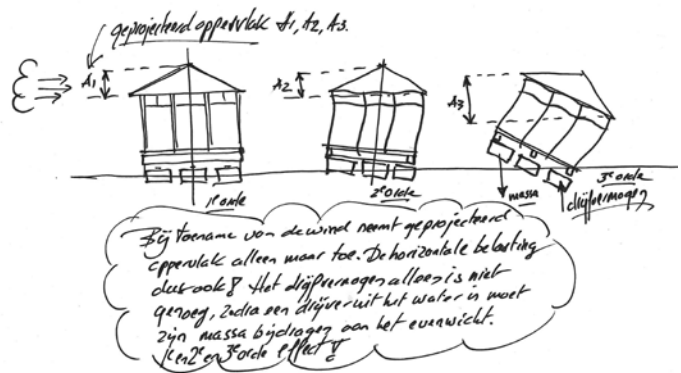 geprojecteerd oppervlak A1, A2, A3.
A1
A2
A3
1e orde
2e orde
3e orde
massa
drijfvermogen
Bij toename van de wind neemt geprojecteerd
oppervlak alleen maar toe. De horizontale belasting
dus ook! Het drijfvermogen alleen is niet
genoeg, zodra een drijver uit het water is moet
zijn massa bijdragen aan het evenwicht.
1e en 2e en 3e orde effect!